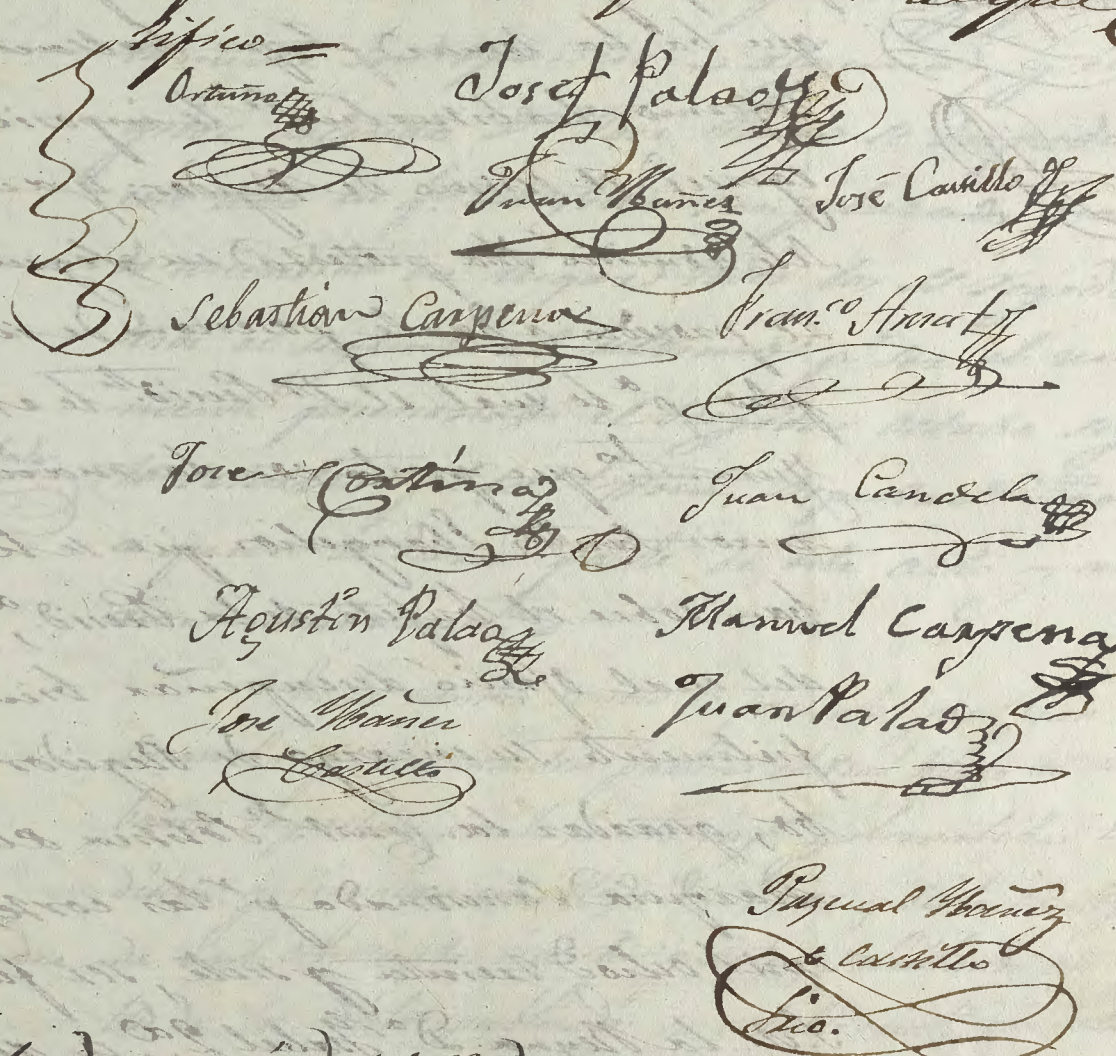 tifico =
Ortuño
Josef Palao
Juan Ybañes
José Castillo
Sebastian Carpena
Fran.co Amat
Jose Cortina
Juan Candela
Agustin Palao
Manuel Carpena
Jose Ybañez
Castillo
Juan Palao
Pascual Ybañez
Castillo
Srio.